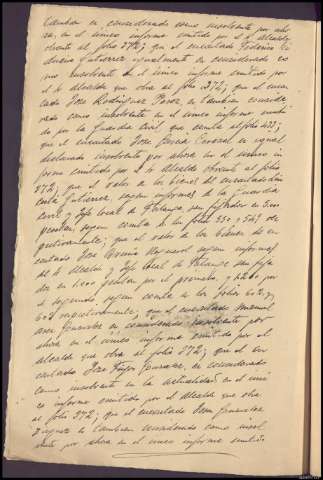 tambien es considerado como insolvente por aho-
ra, en el unico informe emitido por el Alcalde
obrante al folio 372; que el encartado Federico
Gutierrez igualmente es considerado co-
mo insolvente en el unico informe emitido por
el Alcalde que obra al folio 372; que el encar-
tado Jose Rodriguez Perez es tambien conside-
rado como insolvente en el unico informe emiti-
do por la Guardia Civil que consta al folio
que el encartado Jose Garcia es igual
declarado insolvente por ahora en el unico in-
forme emitido por el Alcalde obrante al folio
372; que el valor a los bienes del encartado
Gutierrez, segun informes de la Guardia
Civil y Jefe local de Falange son fijados en
pesetas, segun consta a los folios 350 y 547 res-
pectivamente; que el valor a los bienes de en-
cartado Jose segun informes
del Alcalde y Jefe local de Falange son fija-
dos en 1.000 pesetas por el primero, y
el segundo, segun consta a los folios
respectivamente; que el encartado Manuel
Gonzalez es considerado insolvente por
ahora en el unico informe emitido por el
Alcalde que obra al folio 372; que el en-
cartado Jose Gonzalez, es considerado
como insolvente en la actualidad en el uni-
co informe emitido por el Alcalde que obra
al folio 372; que el encartado Jose Gonzalez
es tambien considerado como insol-
vente por ahora en el unico informe emitido